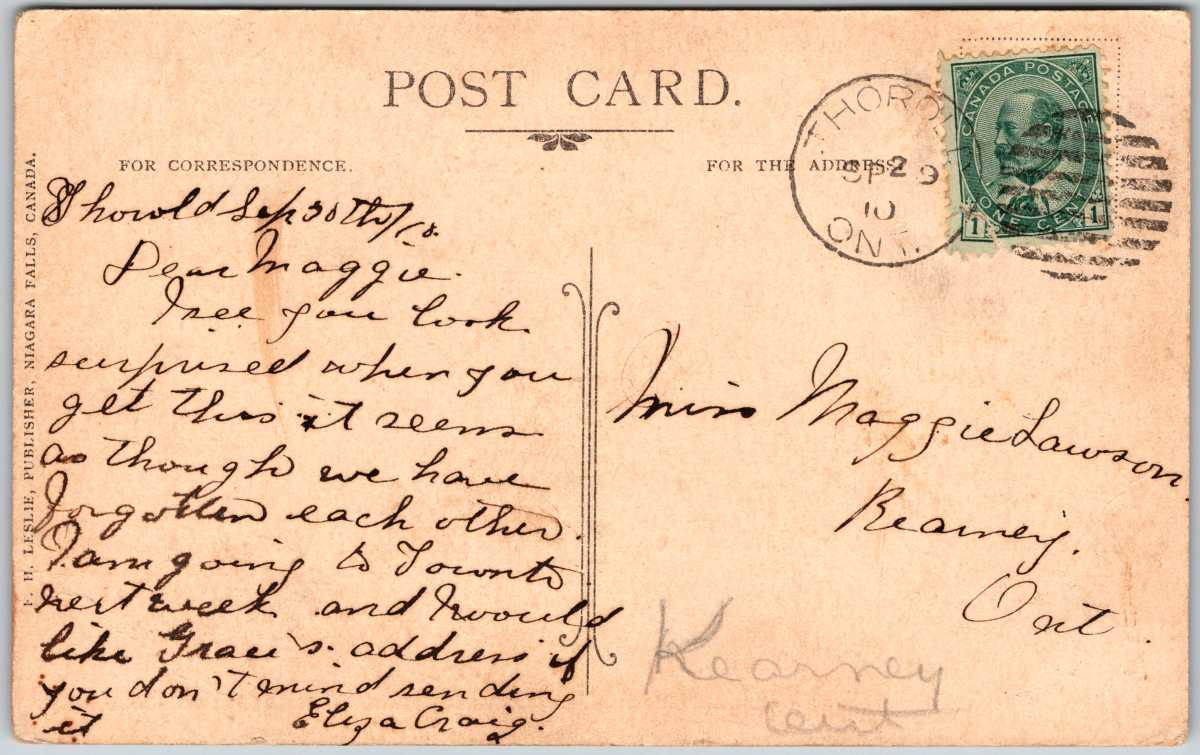 POST CARD.
FOR CORRESPONDENCE.
FOR THE ADDRESS.
THOROLD
SP 29
10
ONT.
CANADA POSTAGE
ONE CENT
1 1
F. H. LESLIE, PUBLISHER, NIAGARA FALLS, CANADA.
Thorold Sep 30th/10.
Dear Maggie.
I see you look
surprised when you
get this it seems
as though we have
forgotten each other.
I am going to Toronto
next week and I would
like Grace's address if
you don't mind sending
it Eliza Craig.
Miss Maggie Lawson.
Kearney.
Ont.
Kearney
ont